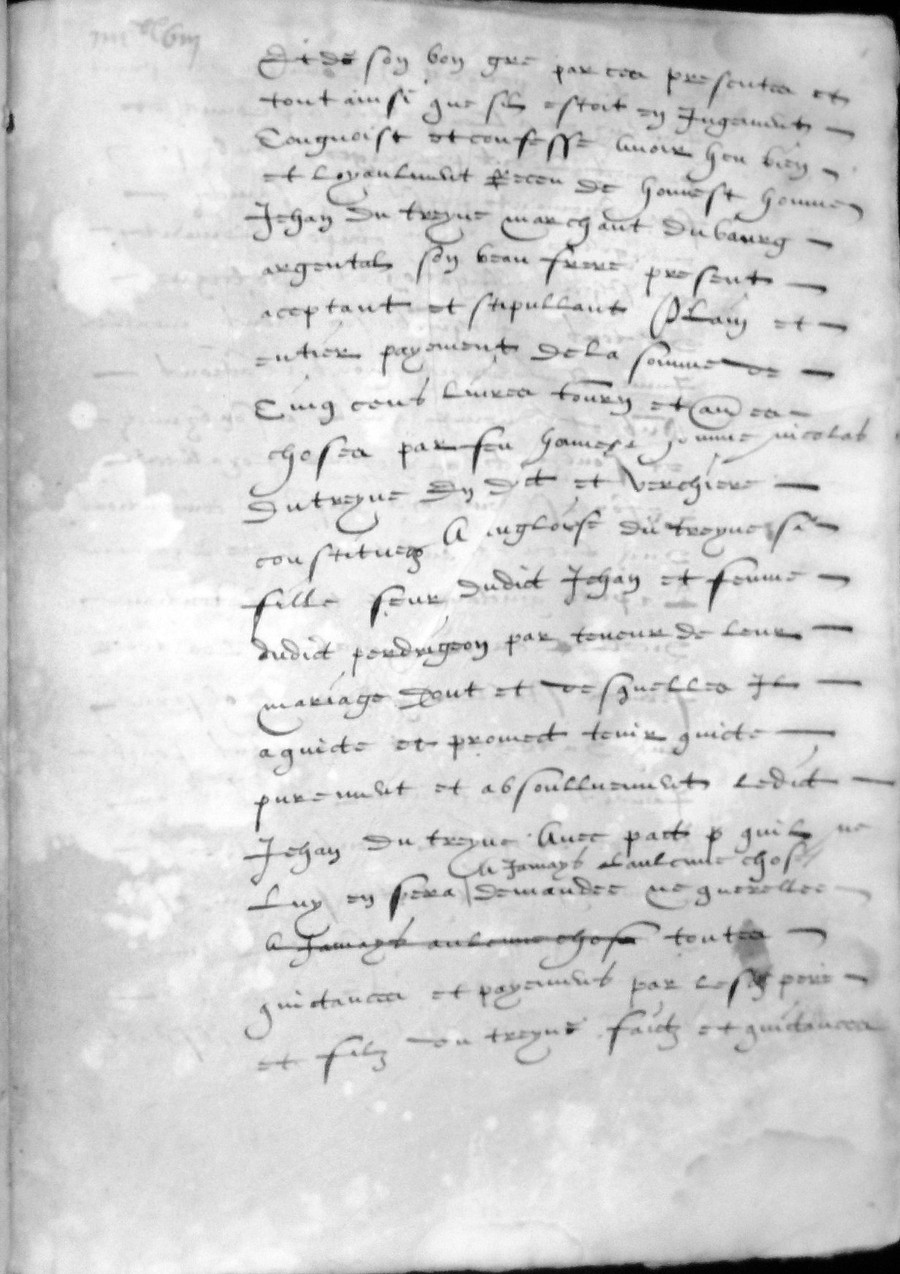 Et de son bon gre par ces presentes et
tout ainsi que sil estoit en Jugement
Congnoist et confesse Avoir heu bien
et loyaulment Receu de honnest homme
Jehan du treyne marchant du bourg
argental son beau frere present
aceptant et stipullant Plain et
entier payement de la somme de
Cinq cens livres tourn et au ces
choses par feu honneste homme nicolas
Dutreyne Dn dt et verchiere
constitueez A Angloise du treyne sa
fille seur dudict Jehan et femme
dudict perdrigeon par teneur de leur
mariage Dont et desquelles Il
a quicte et promect tenir quicte
purement et absolluement ledict
Jehan du treyne Avec pact p quil ne
A Jamays aulcune chose
Luy en sera demandee ne querellee
A Jamays aulcune chose toutes
quictances et payemens par lesd pere
et filz du treyne faictz et quictances